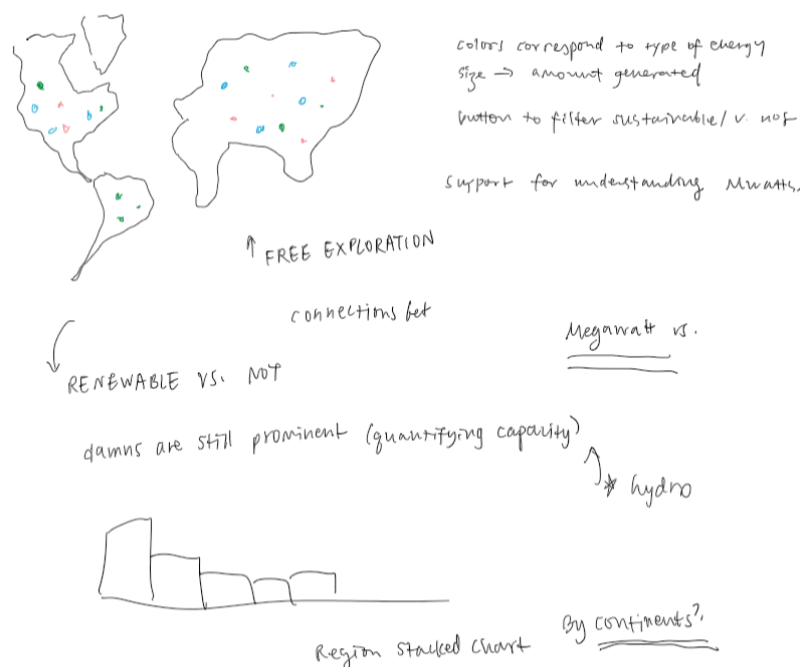 colors correspond to type of energy
size → amount generated
button to filter sustainable/ v. not
support for understanding Mwatts.
↑ FREE EXPLORATION
connections bet
Megawatt vs.
RENEWABLE VS. NOT
damns are still prominent (quantifying capacity)
* hydro
Region stacked chart
By continents?